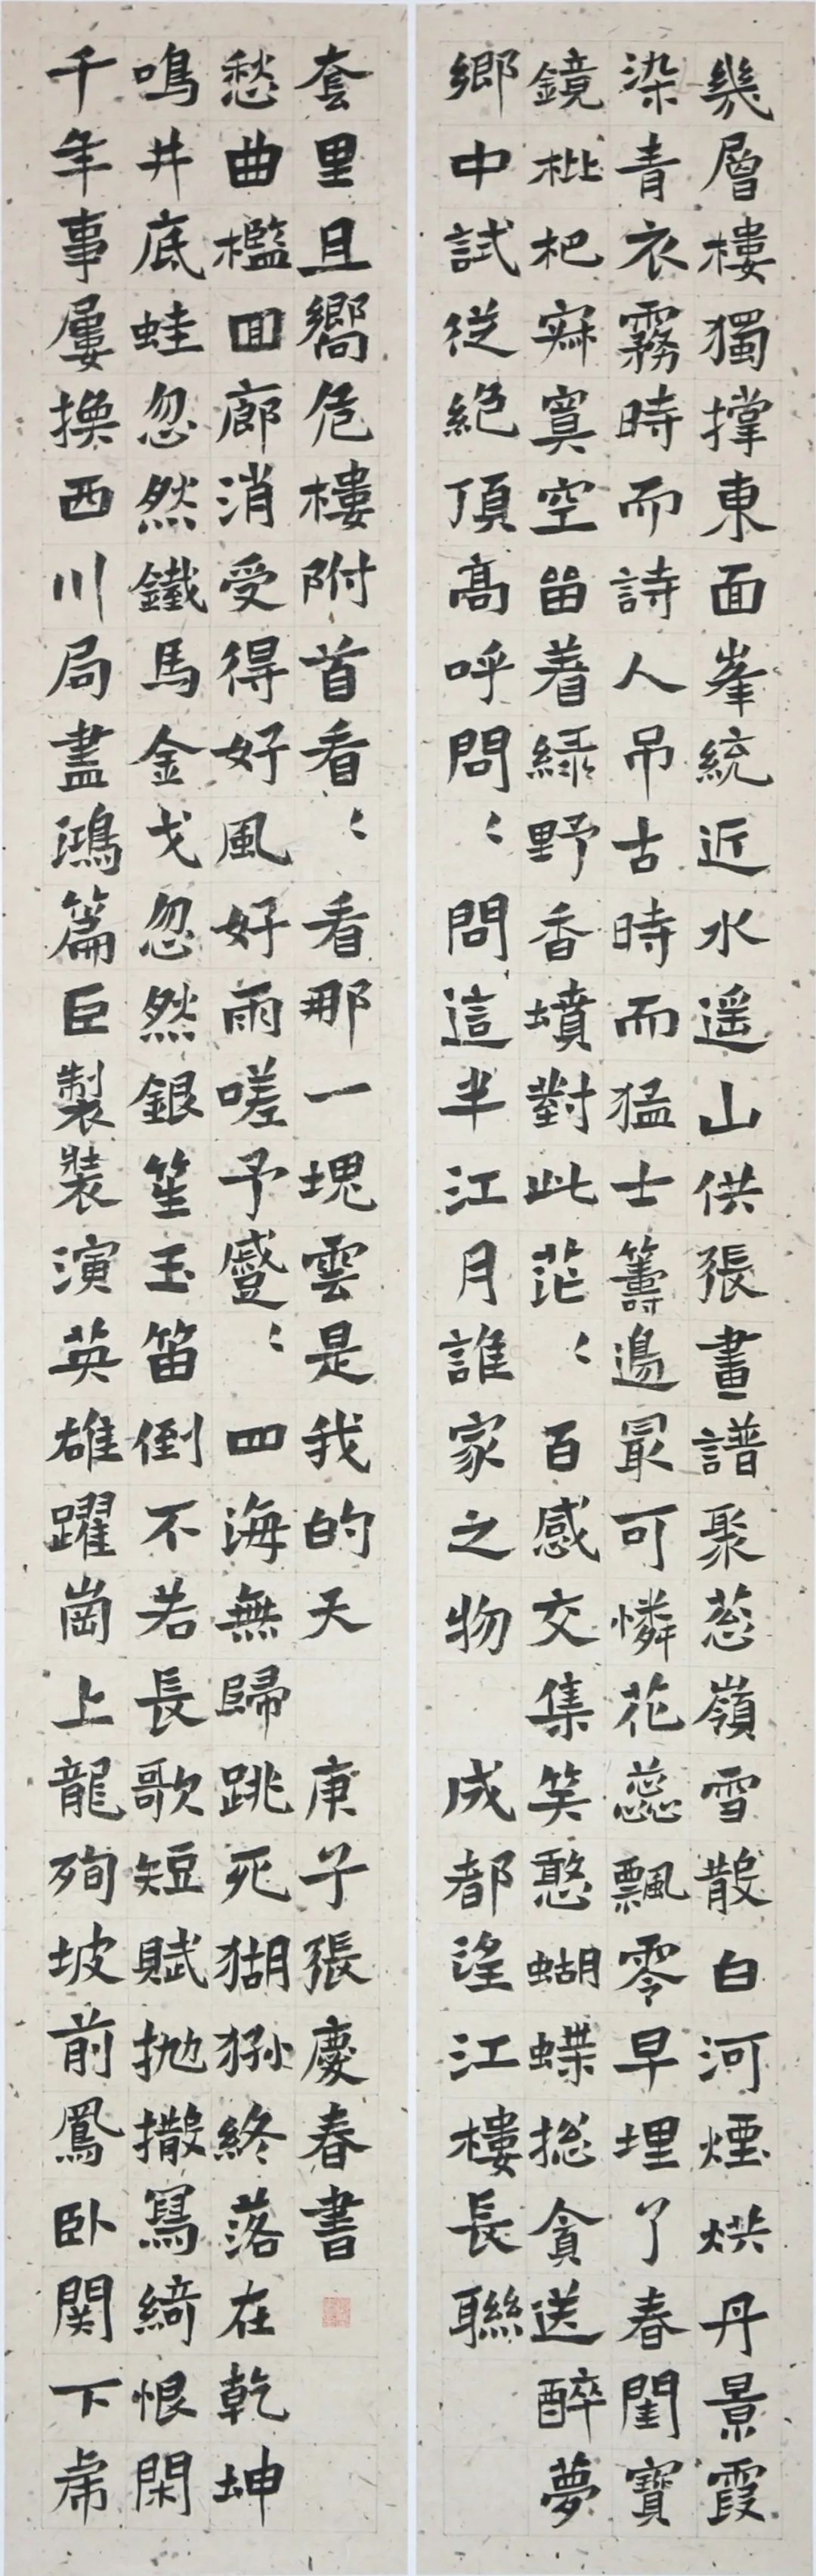 幾層樓獨撐東面峯統近水遥山供張畫譜聚葱嶺雪散白河煙烘丹景霞
染青衣霧時而詩人吊古時而猛士籌邊最可憐花蕊飄零早埋了春閨寶
鏡枇杷寂寞空留着緑野香墳對此茫〻百感交集笑憨蝴蝶搃貪送醉夢
鄉中試從絕頂高呼問〻問這半江月誰家之物 成都望江樓長聯
千年事屢換西川局盡鴻篇巨製裝演英雄躍崗上龍殉坡前鳳卧関下虎
鳴井底蛙忽然鐵馬金戈忽然銀笙玉笛倒不若長歌短賦拋撒寫綺恨閑
愁曲檻回廊消受得好風好雨嗟予蹙〻四海無歸跳死猢猻終落在乾坤
套里且嚮危樓附首看〻看那一塊雲是我的天 庚子張慶春書